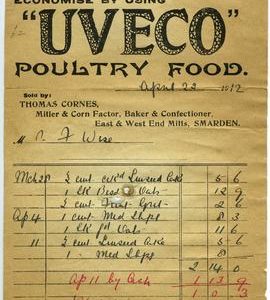 ECONOMISE BY USING
"UVECO"
POULTRY FOOD.
April 22 1912
Sold by:
THOMAS CORNES,
Miller & Corn Factor, Baker & Confectioner,
East & West End Mills, SMARDEN.
M F Wise
Mch 28 2 cwt Linseed Cake 5-6
1 Sk Oats 12 9
2 cwt Flint Grit 2 6
Ap 4 1 cwt Med Shps 8 3
1 Sk Oats 11 6
11 2 cwt Linseed Cake 5-6
1 - Med Shps 8
2 14 0
Ap 11 by Cash 1 13 9